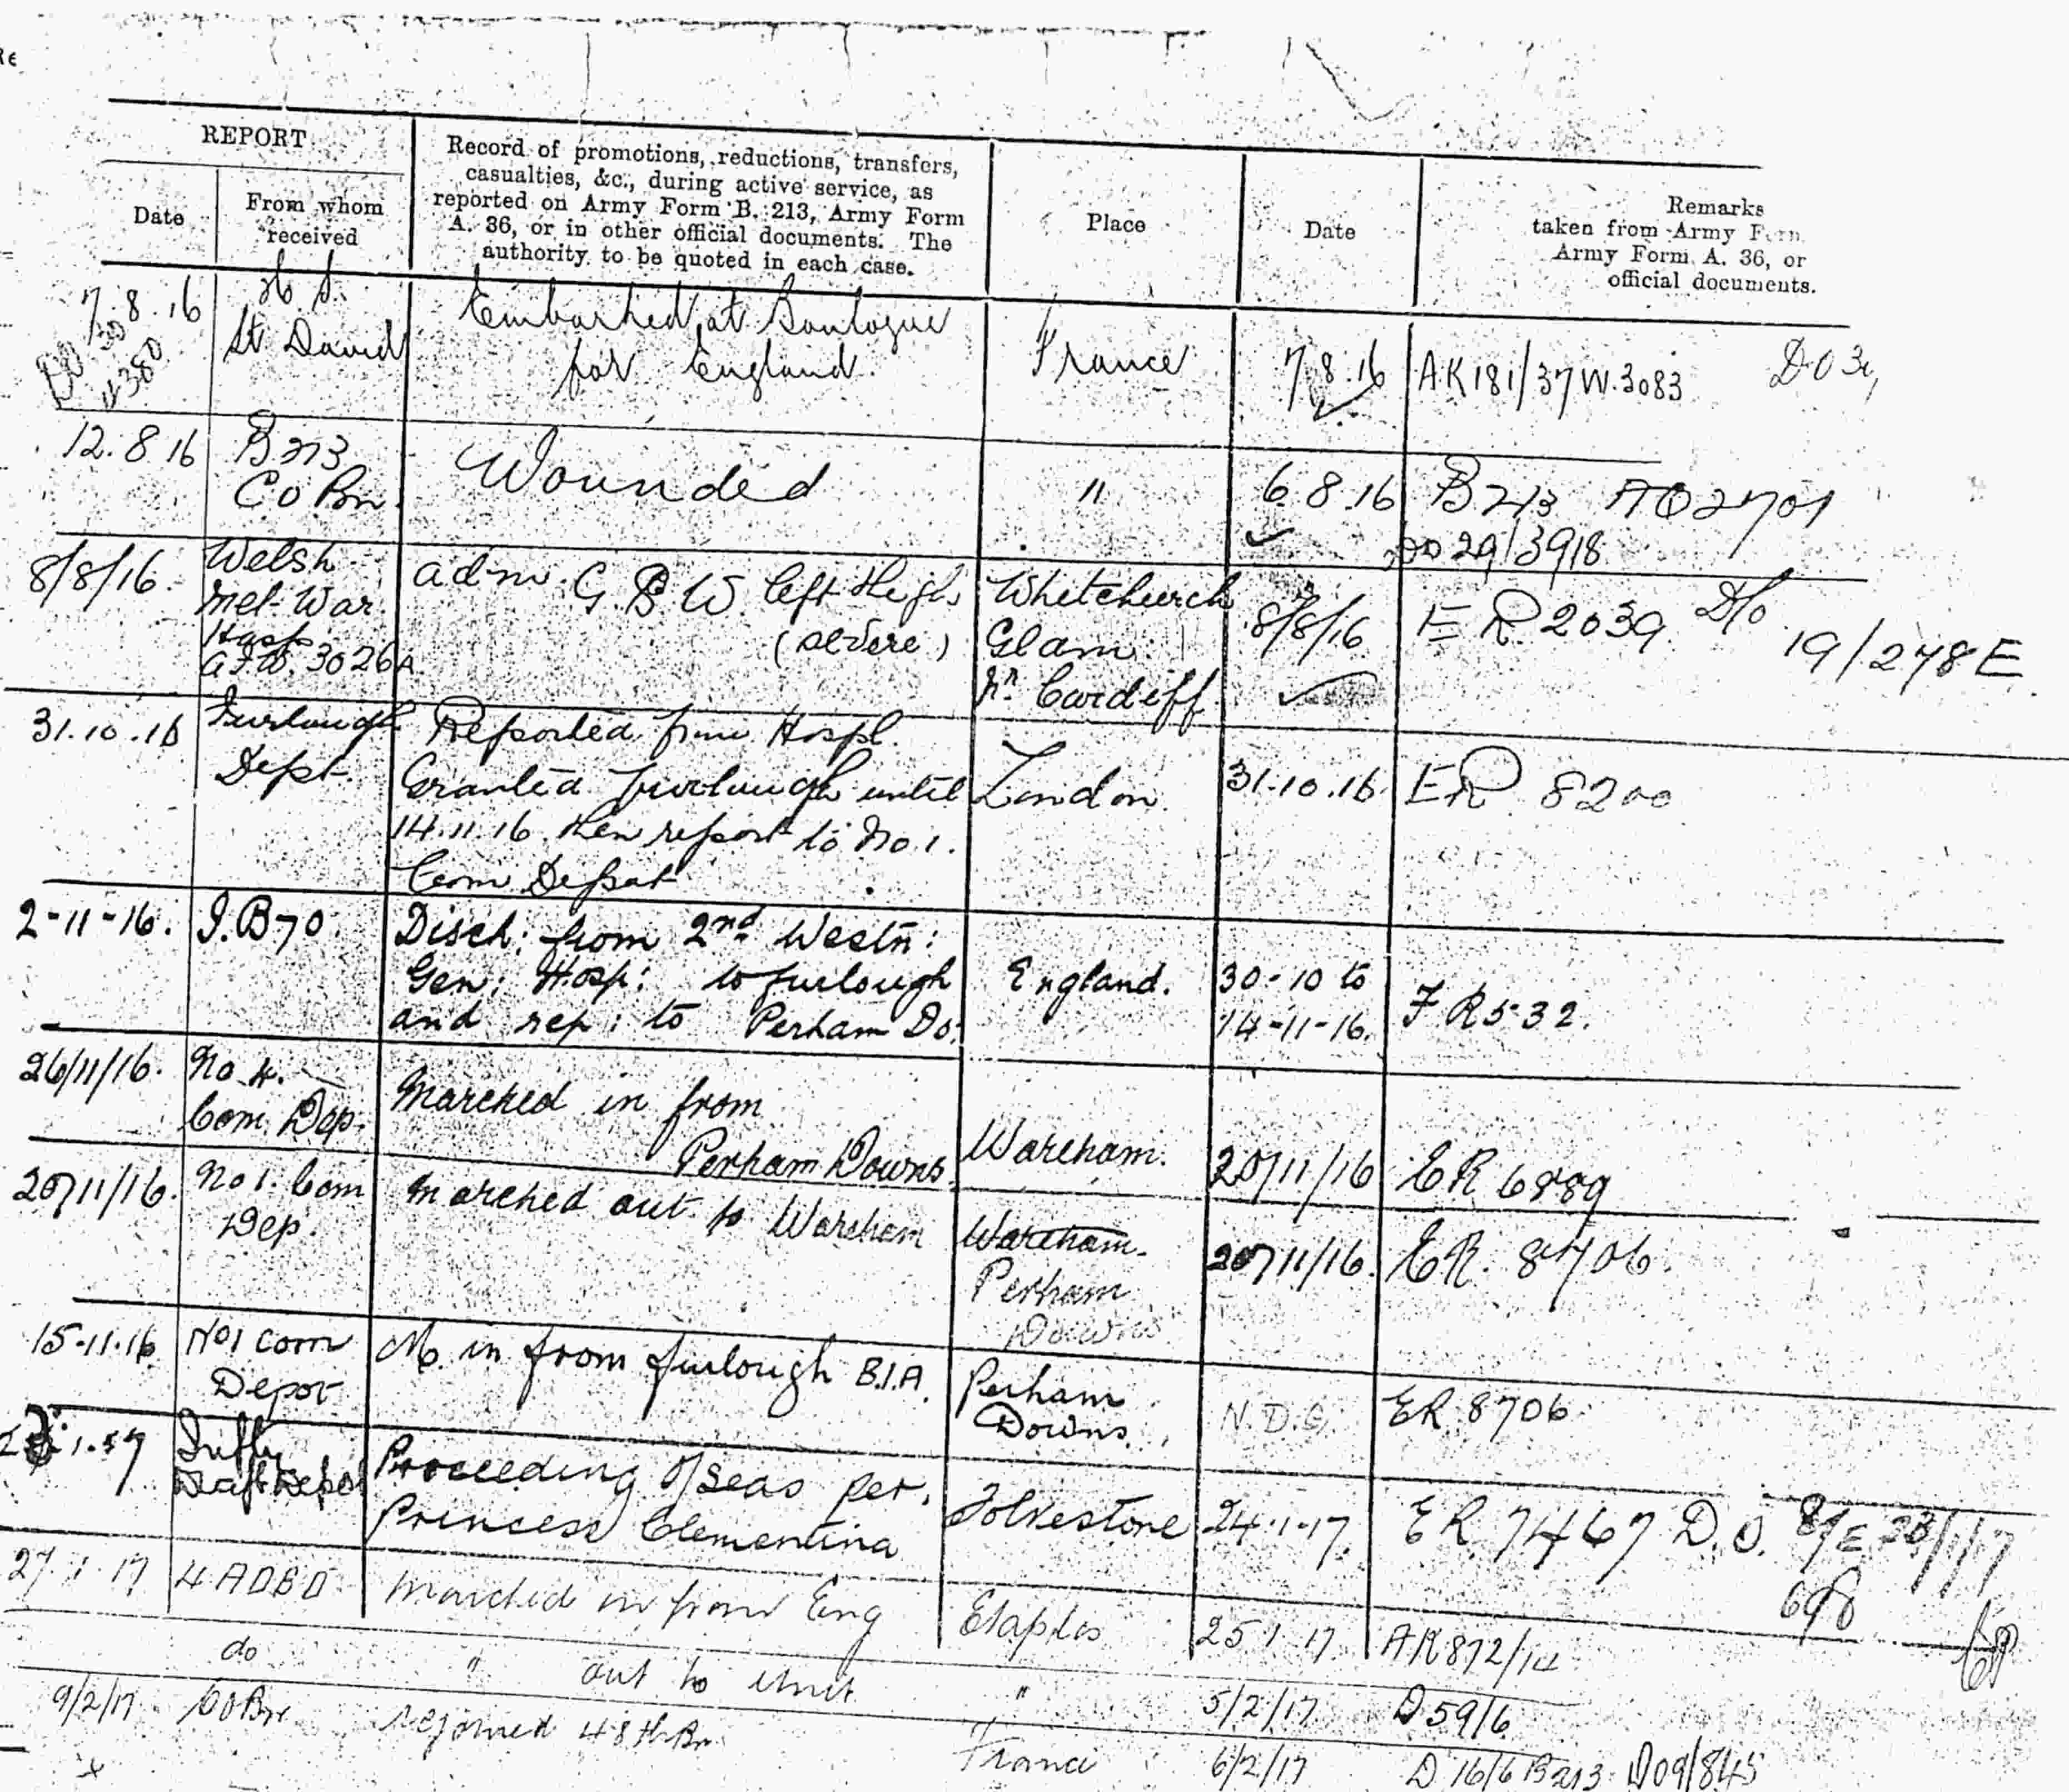 REPORT
Date
From whom
received
Record of promotions, reductions, transfers,
casualties, &c., during active service, as
reported on Army Form B. 213, Army Form
A. 36, or in other official documents. The
authority to be quoted in each case.
Place
Date
Remarks
taken from Army Form
Army Form A. 36, or
official documents.
7.8.16
St David
Embarked at Boulogne
for England
France
7.8.16
AK181/37W.3083
12.8 16
B213
CO Bn.
Wounded
"
6.8.16
B213 AO2701
DO 29/3918
8/8/16
Welsh
Met. War
Hosp
A.F.W. 3026A
adm. G.S.W. left thigh
(severe)
Whitchurch
Glam
Nr. Cardiff
8/8/16
E R 2039 D/o
19/278E
31.10.16
Furlough
Dept.
Reported from Hospl.
Granted furlough until
14.11.16. then report to No.1.
Com Depot
London
31.10.16.
ER 8200
2-11-16.
I.B70.
Disch: from 2nd Westn:
Gen: Hosp: to furlough
and rep: to Perham Do:
England.
30-10 to
14-11-16.
F R532.
26/11/16.
No 4.
Com. Dep.
Marched in from
Perham Downs.
Wareham.
20/11/16
ER 6889
20/11/16.
No 1. Com
Dep.
Marched out to Wareham
Wareham.
Perham
Downs
20/11/16.
ER. 8706
15-11-16
No1 Com
Depot
M. in from furlough B.I.A.
Perham
Downs.
N.D.G.
ER 8706
Draft Depot
Proceeding O/seas per.
Princess Clementina
Folkestone
24.1.17.
ER 7467 D.O. 8/E 23/1/17
698
27.1.17
4 ADBD
Marched in from Eng
Etaples
25.1.17
AK872/14
do
" out to Unit
"
5/2/17
D59/6
9/2/17
CO Bn
rejoined 48th Bn
France
6/2/17
D 16/6 B213 DO9/845